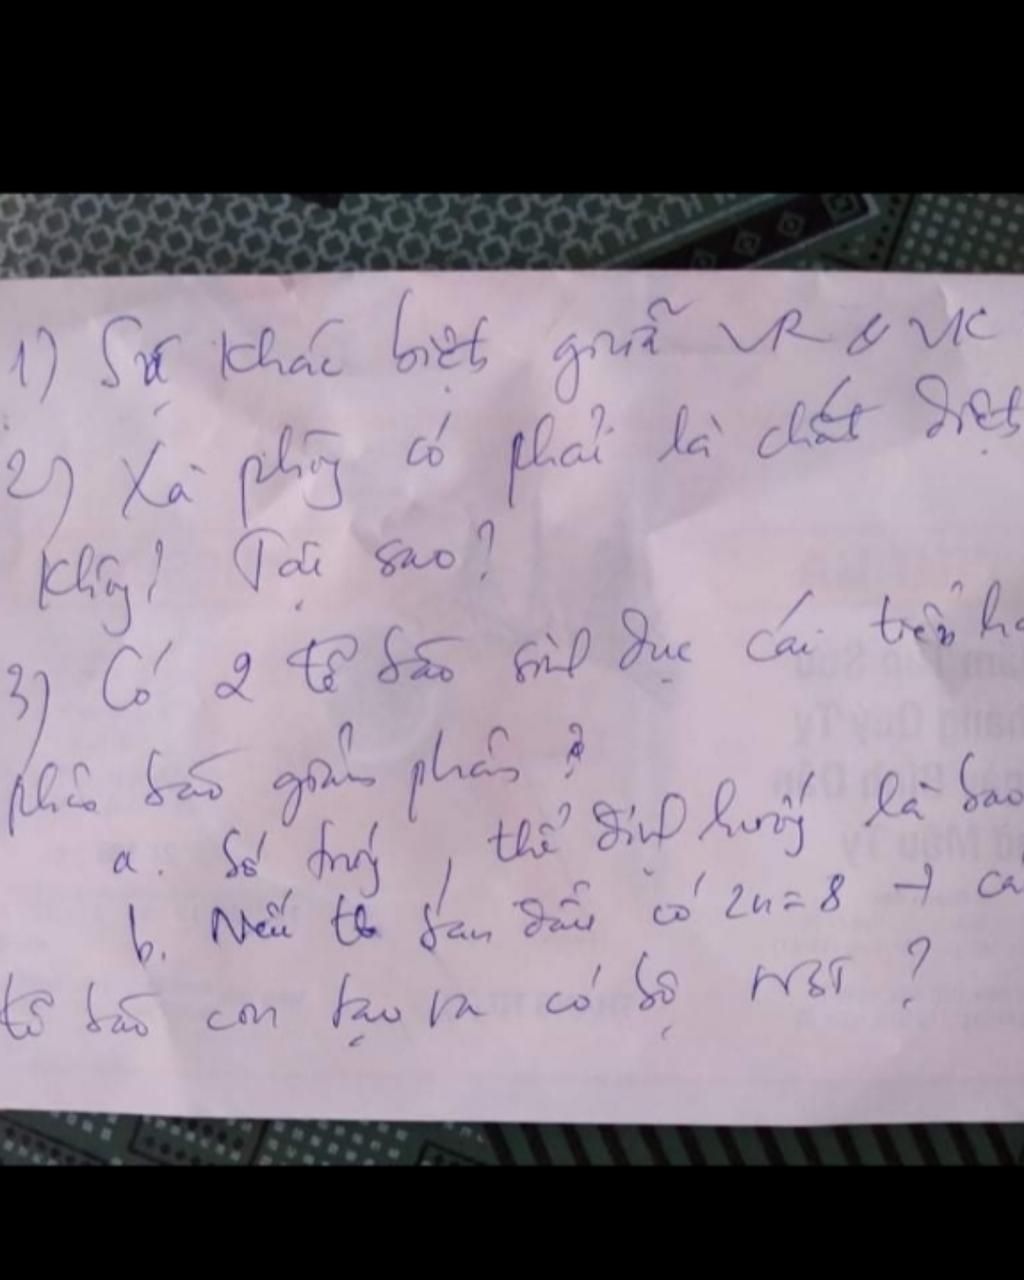 1) Sự khác biệt giữa VR & VK
2) Xà phòng có phải là chất diệt
không? Tại sao?
3) Có 2 tế bào sinh dục cái tiến h
phân bào giảm phân ?
a. Số trứng, thể định hướng là bao
b. Nếu tb ban đầu có 2n = 8 → cá
tế bào con tạo ra có bộ NST ?